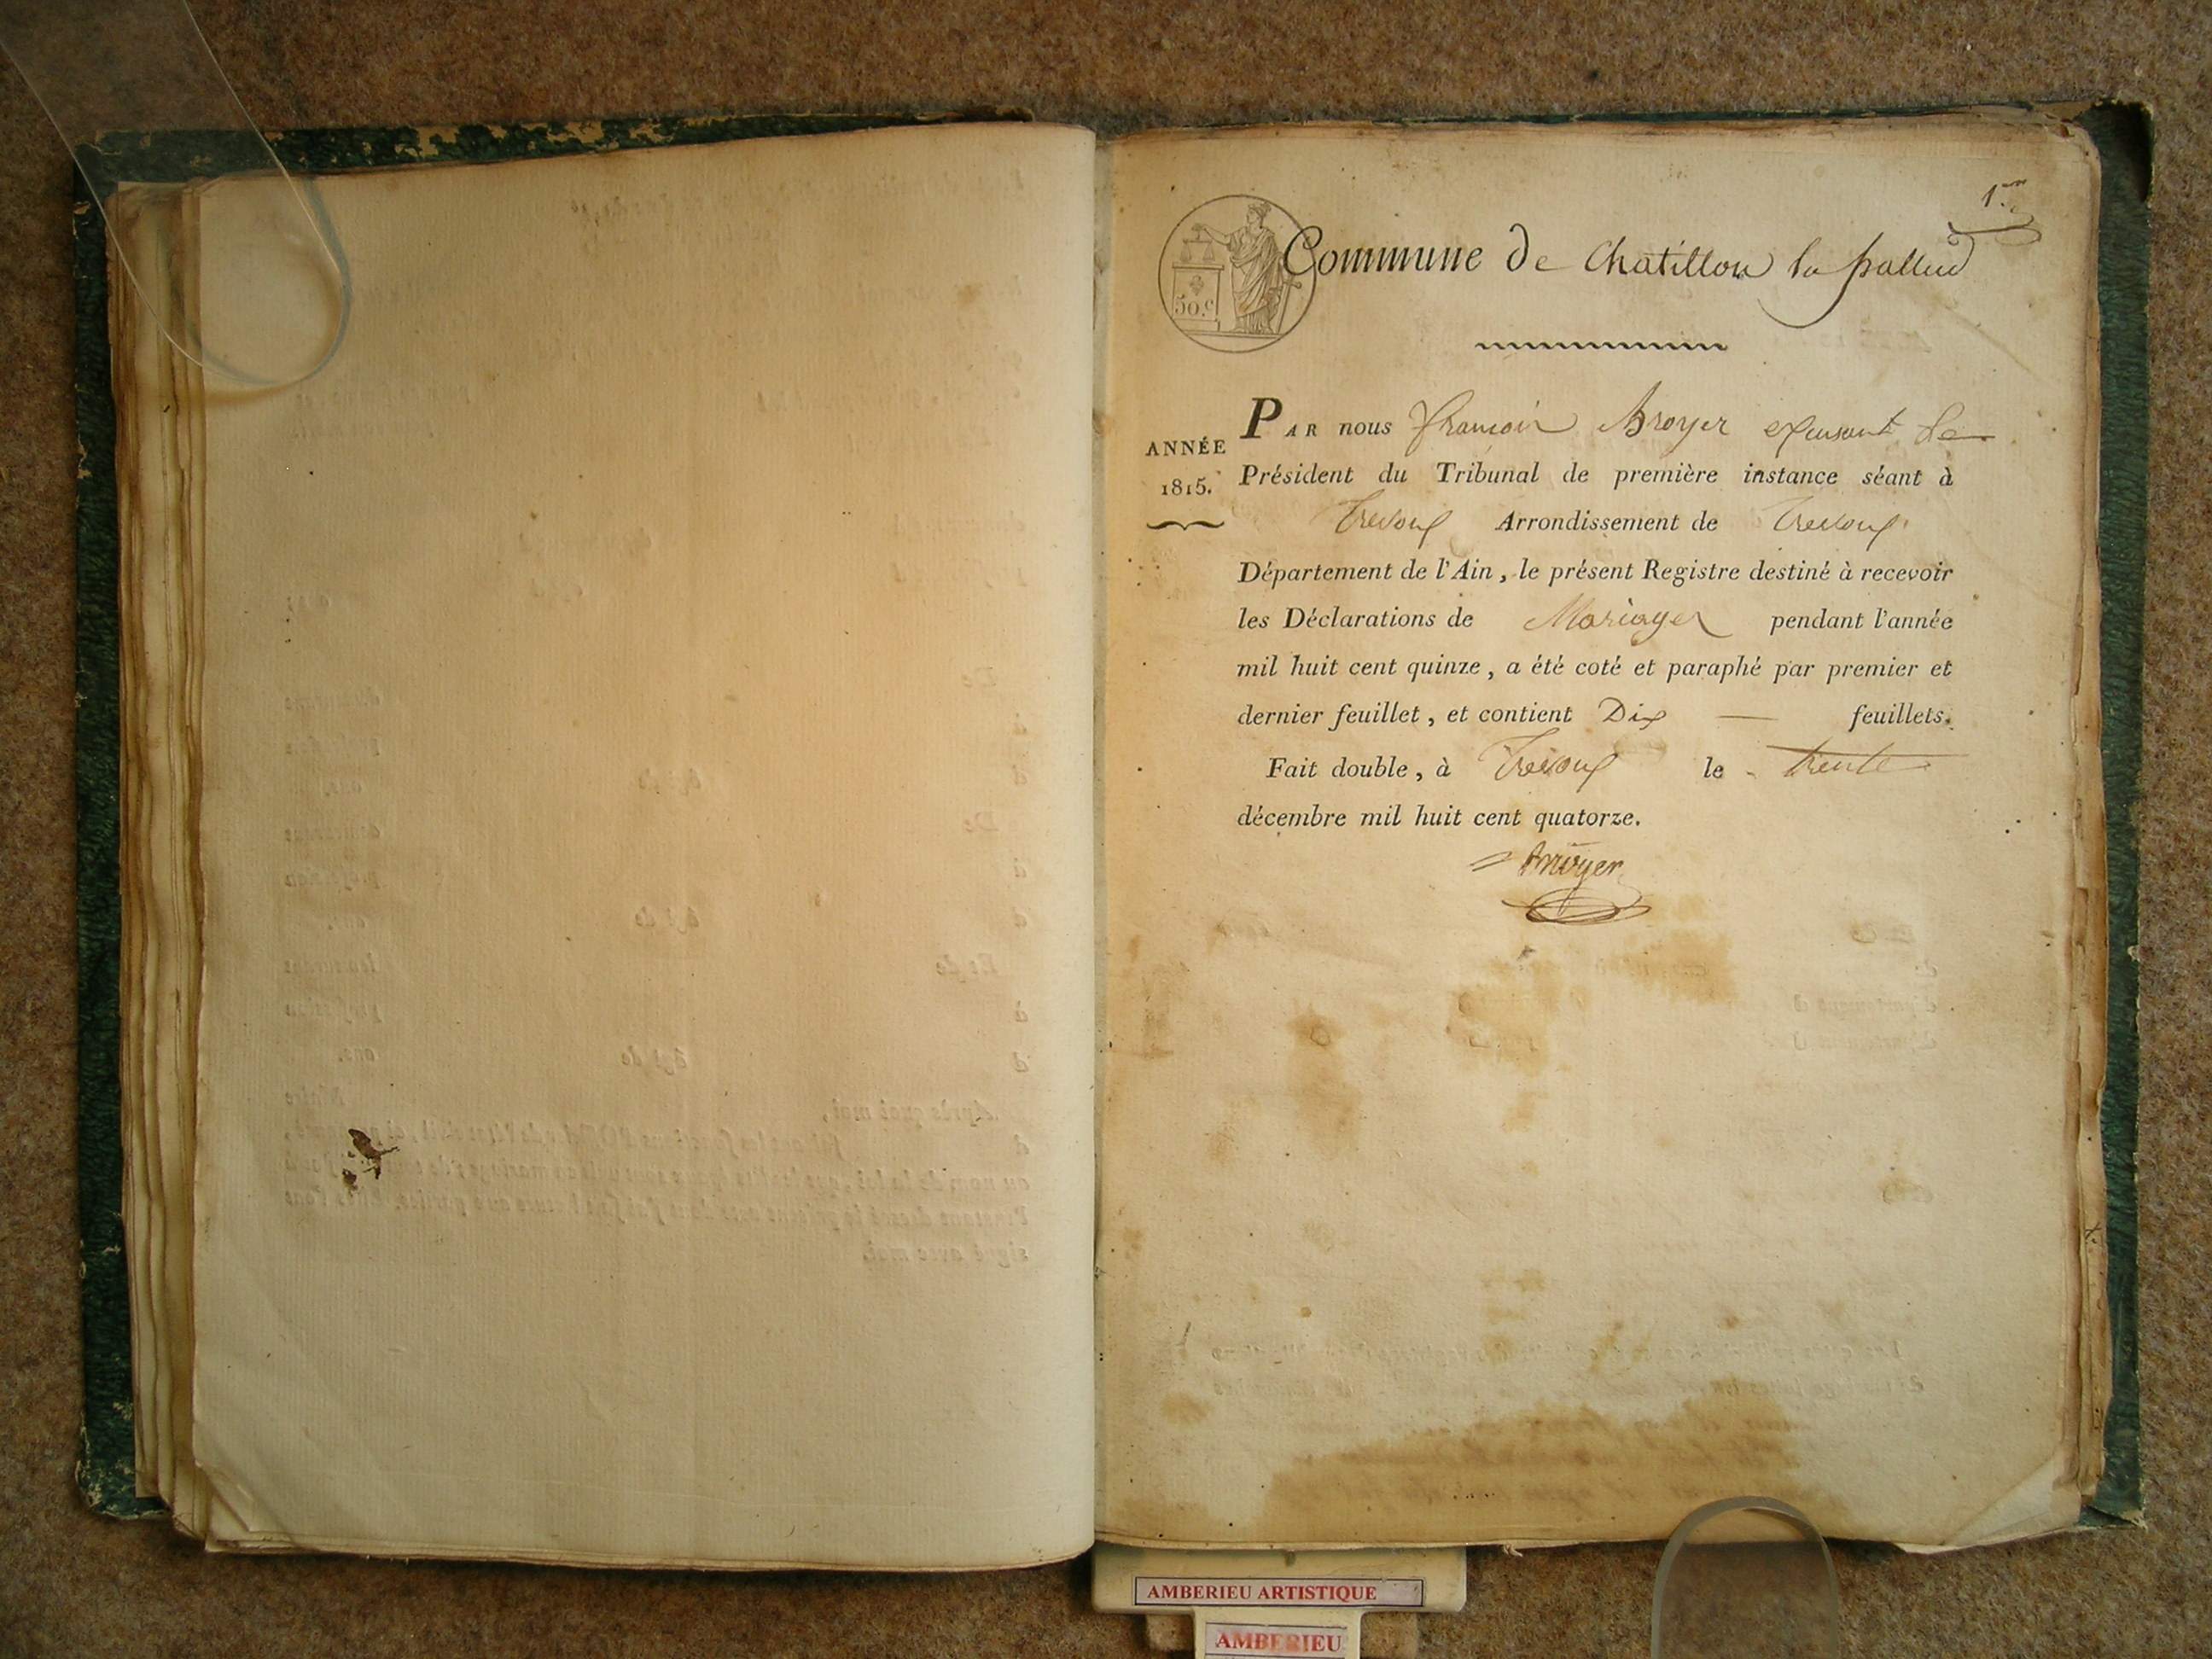 1er
50.c
Commune de Chatillon la pallud
ANNÉE
1815.
PAR nous françois Broyer expensant le
Président du Tribunal de première instance séant à
Trevoux Arrondissement de Trevoux
Département de l'Ain, le présent Registre destiné à recevoir
les Déclarations de Mariages pendant l'année
mil huit cent quinze, a été coté et paraphé par premier et
dernier feuillet, et contient Dix — feuillets.
Fait double, à Trevoux le trente
décembre mil huit cent quatorze.
Broyer
AMBERIEU ARTISTIQUE
AMBERIEU